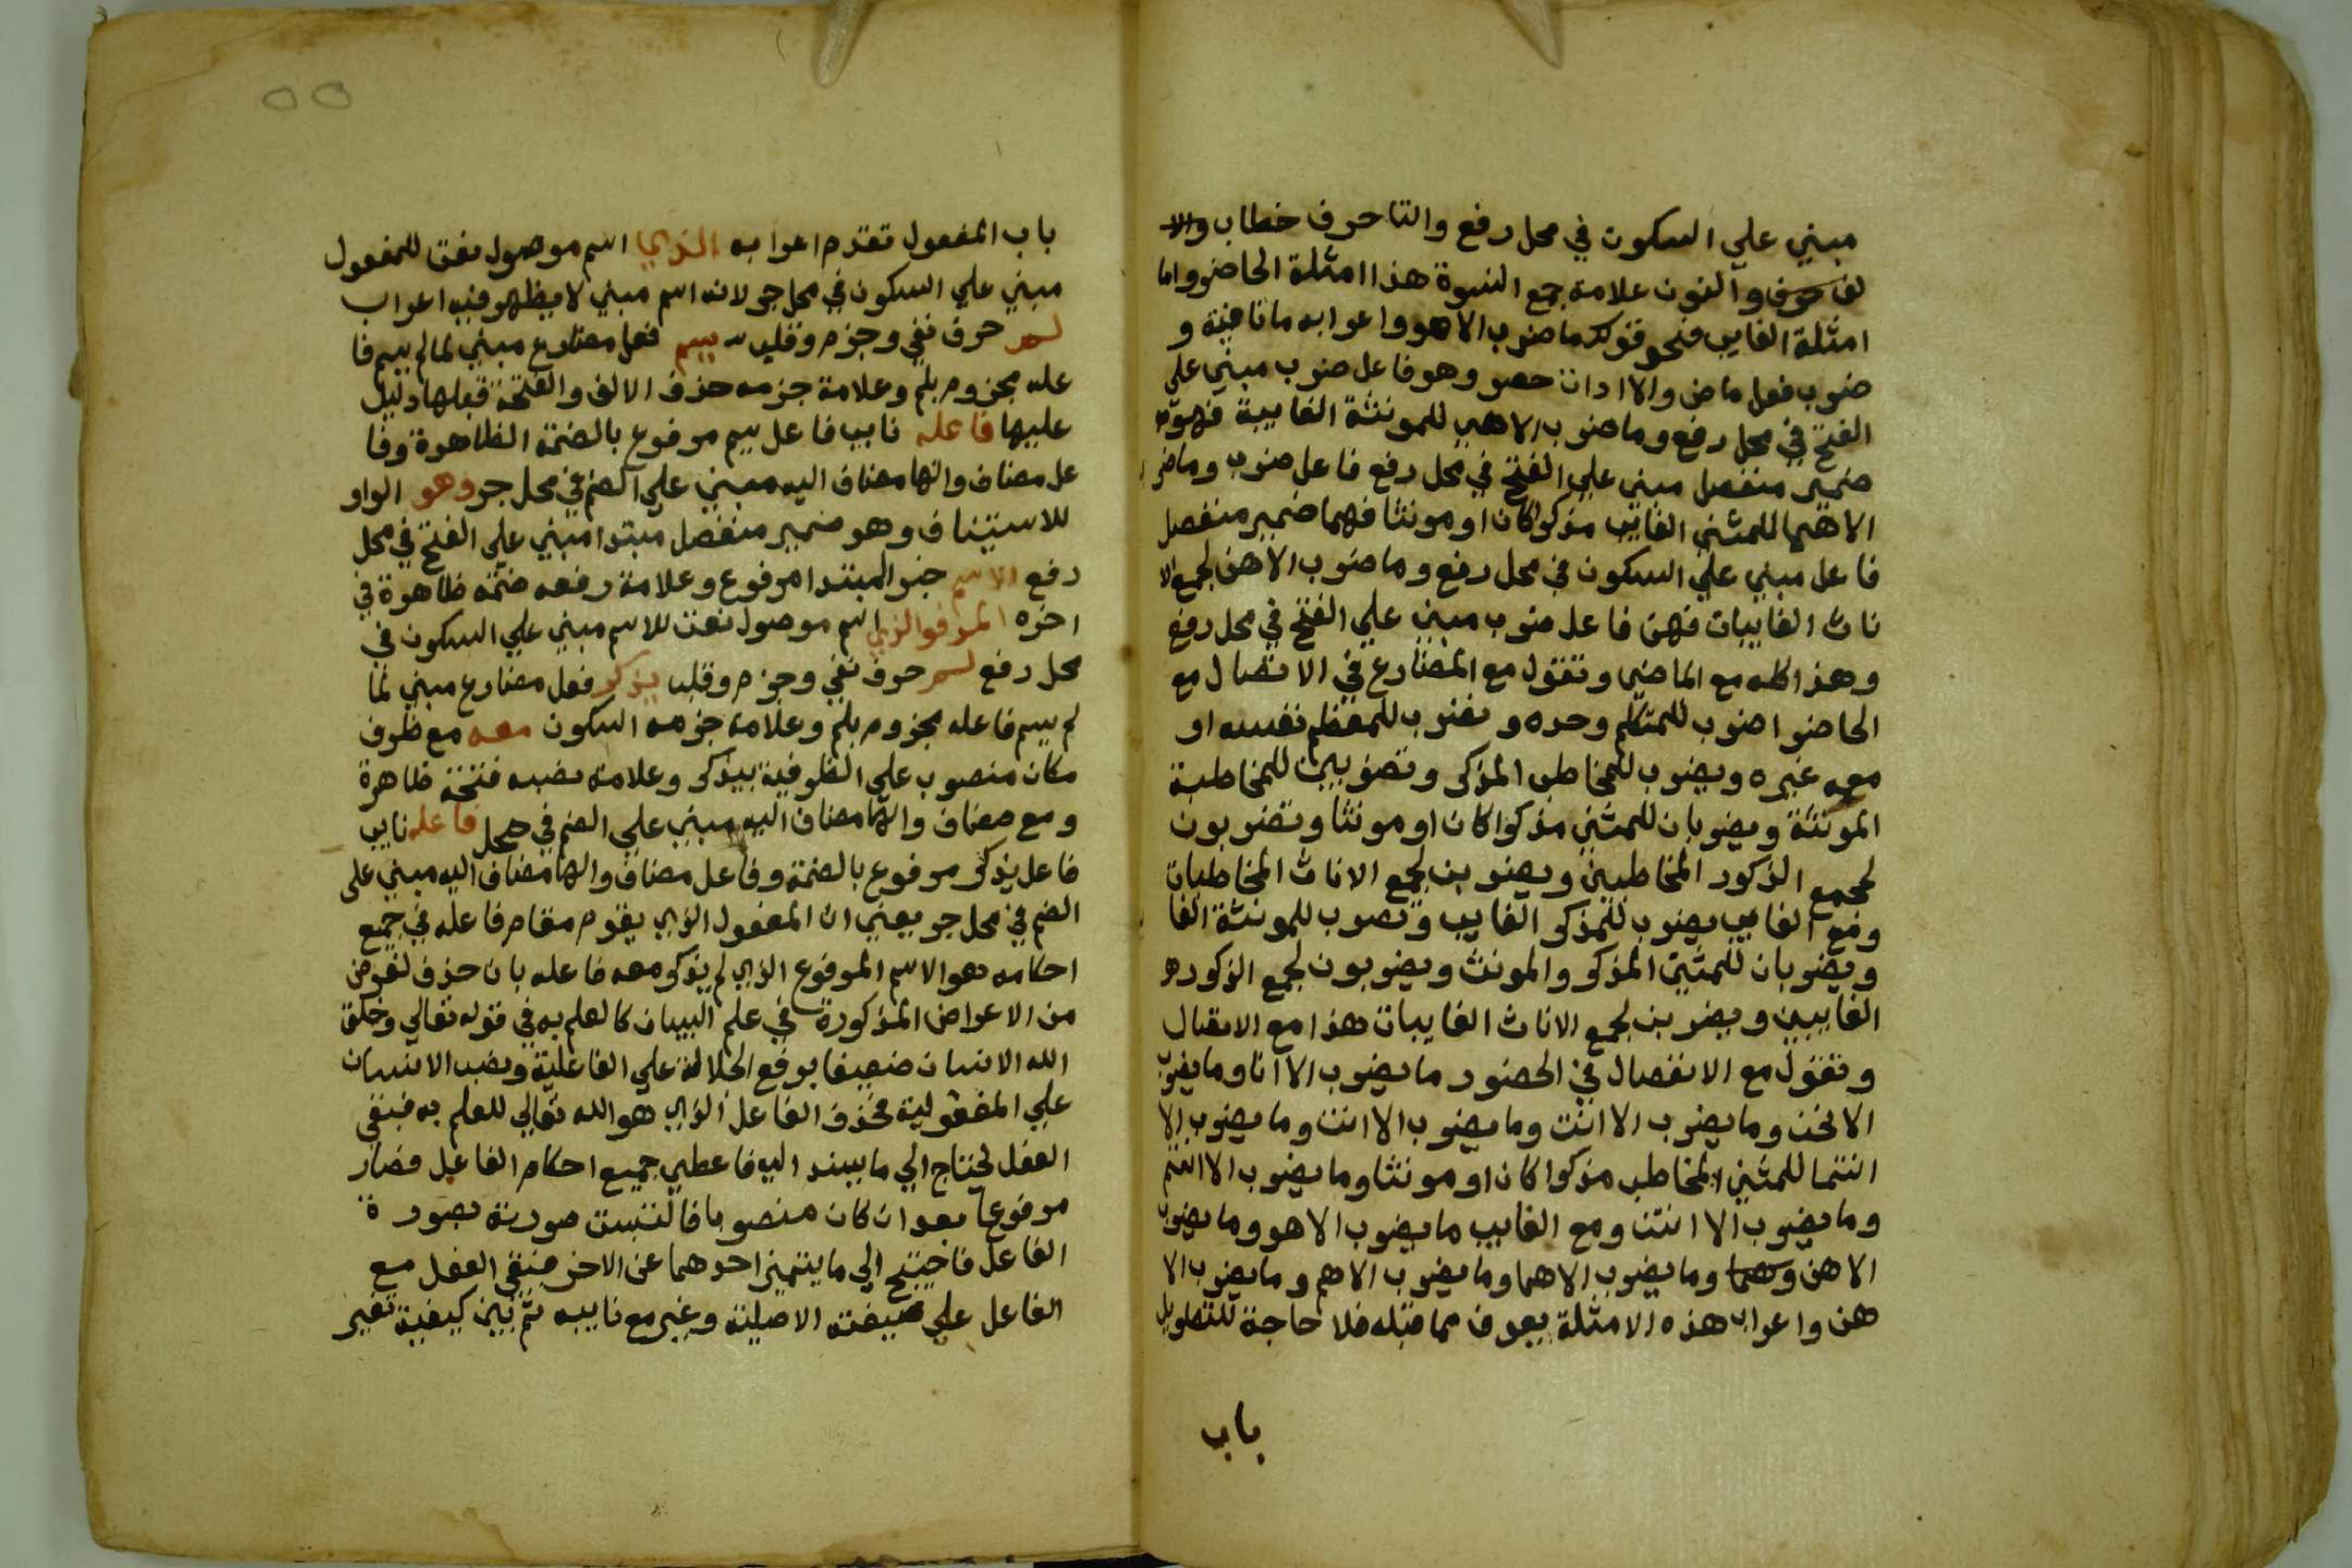 مبني علي السكون في محل رفع والتا حرف خطاب والا
لف حرف والنون علامة جمع النسوة هذا امثلة الحاضر واما
امثلة الغايب فنحو قولك ما ضرب الا هو واعرابه ما نافية و
ضرب فعل ماض والا اداة حصر وهو فاعل ضرب مبني علي
الفتح في محل رفع وما ضرب الا هي للمونثة الغايبة فهو
ضمير منفصل مبني علي الفتح في محل رفع فاعل ضرب وما ضر
الا هما للمثني الغايب مذكرا كان او مونثا فهما ضمير منفصل
فاعل مبني علي السكون في محل رفع وما ضرب الا هن لجمع الا
ناث الغايبات فهن فاعل ضرب مبني علي الفتح في محل رفع
وهذا كله مع الماضي وتقول مع المضارع في الاتصال مع
الحاضر اضرب للمتكلم وحده ونضرب للمعظم نفسه او
معه غيره ويضرب للمخاطب المذكر وتضربين للمخاطبة
المونثة ويضربان للمثني مذكرا كان او مونثا وتضربون
لجمع الذكور المخاطبين ويضربن لجمع الاناث المخاطبات
ومع الغايب يضرب للمذكر الغايب وتضرب للمونثة الغا
ويضربان للمثني المذكر والمونث ويضربون لجمع الذكور
الغايبين ويضربن لجمع الاناث الغايبات هذا مع الاتصال
وتقول مع الانفصال في الحضور ما يضرب الا انا وما يضرب
الا نحن وما يضرب الا انت وما يضرب الا انت وما يضرب الا
انتما للمثني المخاطب مذكرا كان او مونثا وما يضرب الا انتم
وما يضرب الا انتن ومع الغايب ما يضرب الا هو وما يضرب
الا هن وهما وما يضرب الا هما وما يضرب الا هم وما يضرب الا
هن واعراب هذه الامثلة يعرف مما قبله فلا حاجة للتطويل
باب
٥٥
باب المفعول تقدم اعرابه الذي اسم موصول نعت للمفعول
مبني علي السكون في محل جر لانه اسم مبني لا يظهر فيه اعراب
لم حرف نفي وجزم وقلب يسم فعل مضارع مبني لما لم يسم فا
عله مجزوم بلم وعلامة جزمه حذف الالف والفتحة قبلها دليل
عليها فاعله نايب فاعل يسم مرفوع بالضمة الظاهرة وفا
عل مضاف والها مضاف اليه مبني علي الضم في محل جر وهو الواو
للاستيناف وهو ضمير منفصل مبتدا مبني علي الفتح في محل
رفع الاسم خبر المبتدا مرفوع وعلامة رفعه ضمة ظاهرة في
اخره المرفوالذي اسم موصول نعت للاسم مبني علي السكون في
محل رفع لم حرف نفي وجزم وقلب يذكر فعل مضارع مبني لما
لم يسم فاعله مجزوم بلم وعلامة جزمه السكون معه مع ظرف
مكان منصوب علي الظرفية بيذكر وعلامة نصبه فتحة ظاهرة
ومع مضاف والها مضاف اليه مبني علي الضم في محل فاعله نايب
فاعل يذكر مرفوع بالضمة وفاعل مضاف والها مضاف اليه مبني على
الضم في محل جر يعني ان المفعول الذي يقوم مقام فاعله في جميع
احكامه هو الاسم المرفوع الذي لم يذكر معه فاعله بان حذف لغرض
من الاعراض المذكورة في علم البيان كالعلم به في قوله تعالي وخلق
الله الانسان ضعيفا برفع الجلالة علي الفاعلية ونصب الانسان
علي المفعولية فحذف الفاعل الذي هو الله تعالي للعلم به فبقي
الفعل لحتاج الي ما يسند اليه فاعطي جميع احكام الفاعل فصار
مرفوعا بعد ان كان منصوبا فالتبست صورته بصورة
الفاعل فاحتيج الي ما يتميز احدهما عن الاخر فبقي الفعل مع
الفاعل علي صيغته الاصلية وغير مع نايبه ثم بين كيفية تغير